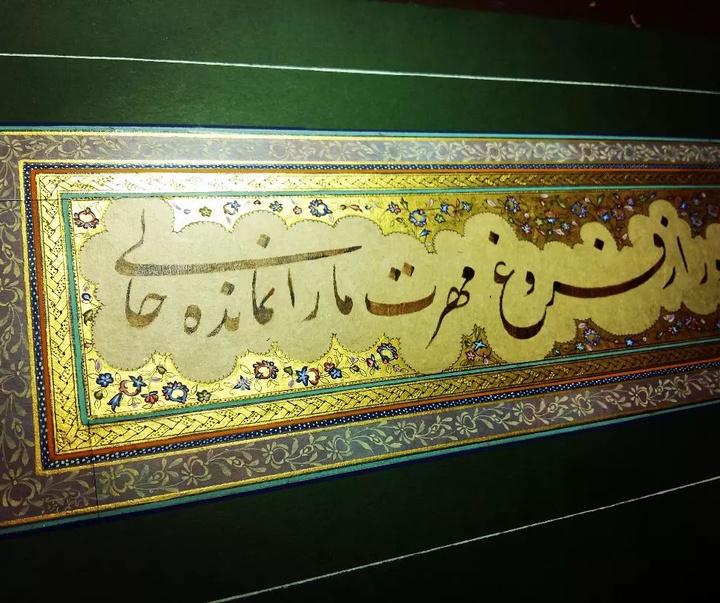 از فروغ مهرت ما را نمانده حالی